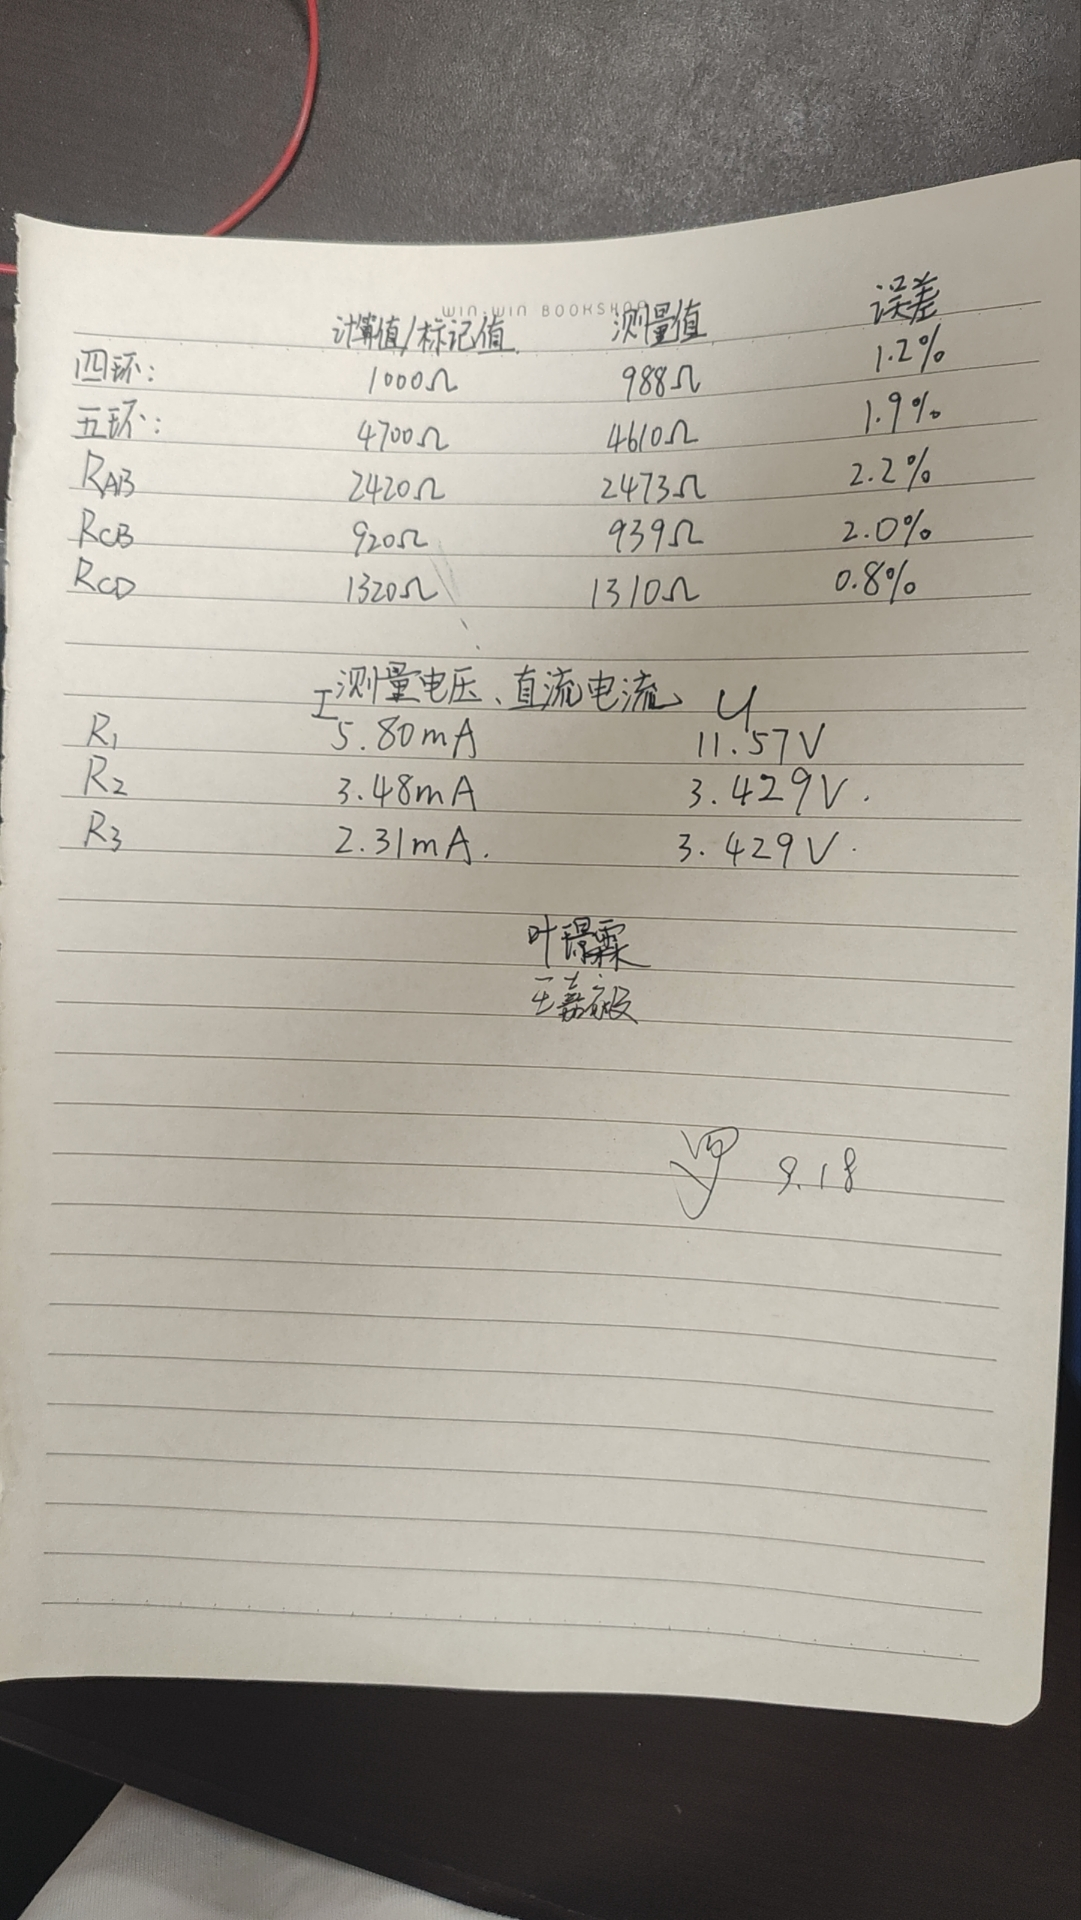 WIN-WIN BOOKSHOP
计算值/标记值 测量值 误差
四环: 1000Ω 988Ω 1.2%
五环: 4700Ω 4610Ω 1.9%
RAB 2420Ω 2473Ω 2.2%
RCB 920Ω 939Ω 2.0%
RCD 1320Ω 1310Ω 0.8%
测量电压、直流电流
I U
R1 5.80mA 11.57V
R2 3.48mA 3.429V.
R3 2.31mA. 3.429V.
叶璟霖
王嘉毅
9.18